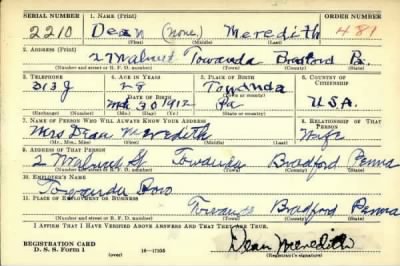 SERIAL NUMBER 1. NAME (Print) ORDER NUMBER
2210 Dean (none) Meredith 481
(First) (Middle) (Last)
2. ADDRESS (Print)
27 Walnut Towanda Bradford Pa.
(Number and street or R. F. D. number) (Town) (County) (State)
3. TELEPHONE 4. AGE IN YEARS 5. PLACE OF BIRTH 6. COUNTRY OF CITIZENSHIP
313 J 29 Towanda
DATE OF BIRTH
Mch 30 1912 Pa U.S.A.
(Exchange) (Number) (Mo.) (Day) (Yr.) (State or country)
7. NAME OF PERSON WHO WILL ALWAYS KNOW YOUR ADDRESS 8. RELATIONSHIP OF THAT PERSON
Mrs Dean Meredith Wife
(Mr., Mrs., Miss) (First) (Middle) (Last)
9. ADDRESS OF THAT PERSON
2 Walnut St Towanda Bradford Penna
(Number and street or R. F. D. number) (Town) (County) (State)
10. EMPLOYER'S NAME
Towanda
11. PLACE OF EMPLOYMENT OR BUSINESS
Towanda Bradford Penna
(Number and street or R. F. D. number) (Town) (County) (State)
I AFFIRM THAT I HAVE VERIFIED ABOVE ANSWERS AND THAT THEY ARE TRUE.
REGISTRATION CARD
D. S. S. Form 1 (over) Dean Meredith
(Registrant's signature)